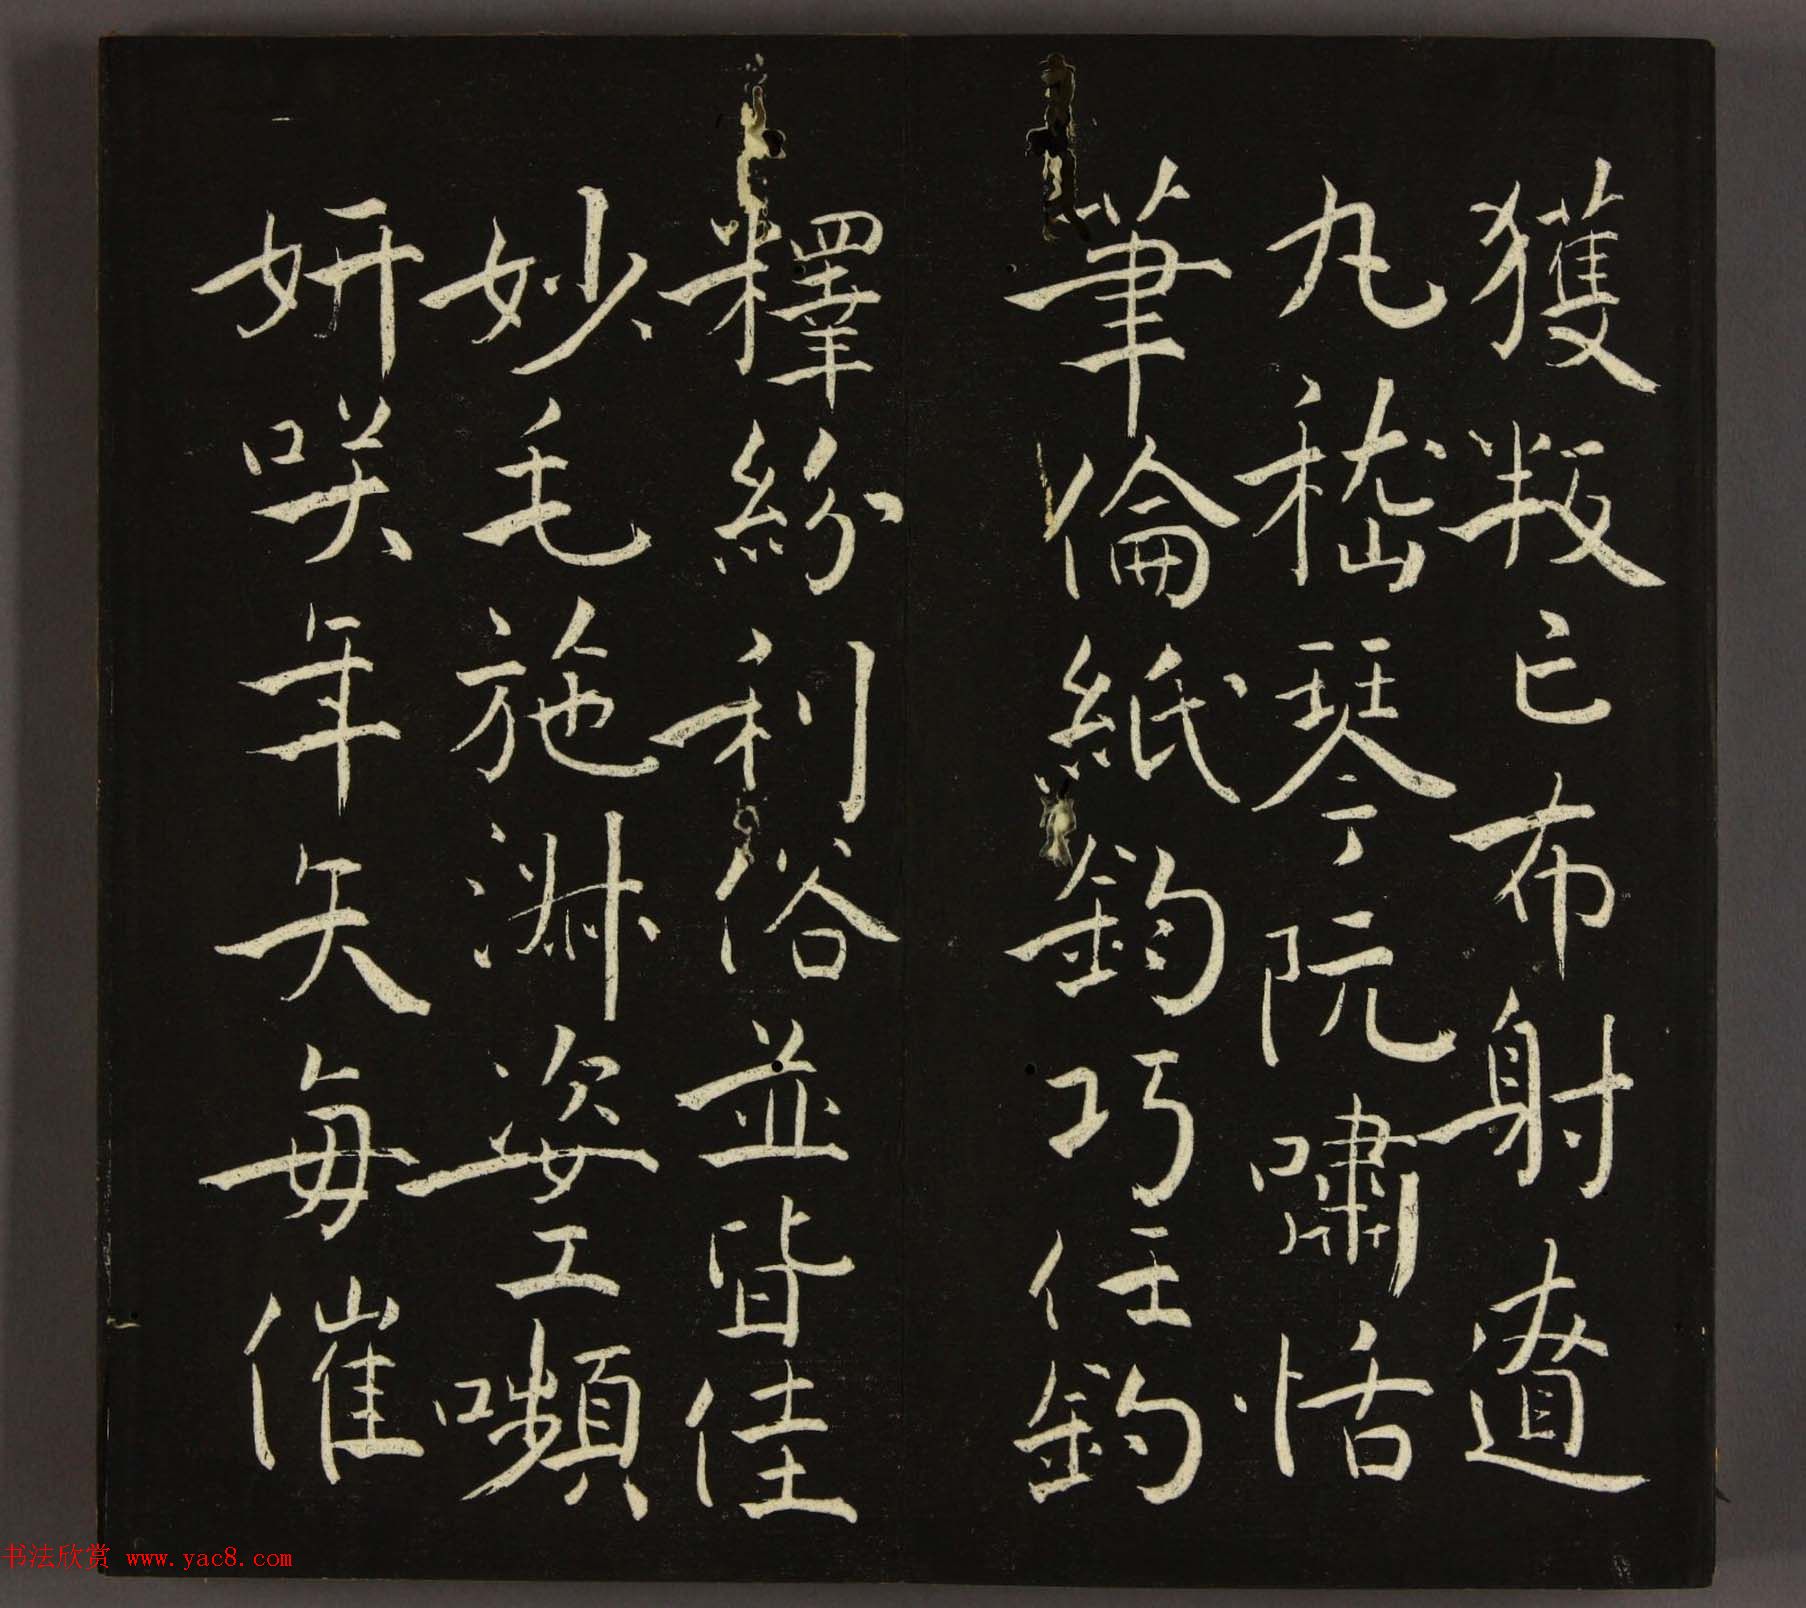 獲叛亡布射遼
丸嵇琴阮嘯恬
筆倫紙鈞巧任釣
釋紛利俗並皆佳
妙毛施淑姿工嚬
妍咲年矢每催
书法欣赏 www.yac8.com